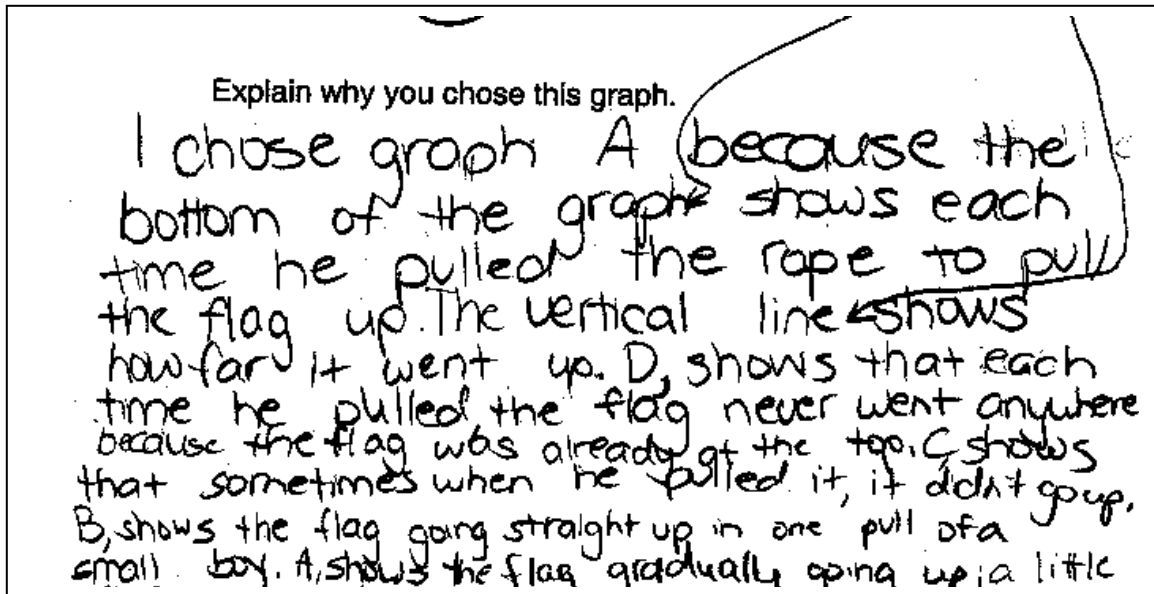 Explain why you chose this graph.
I chose graph A because the
bottom of the graph shows each
time he pulled the rope to pull
the flag up. The vertical line shows
how far it went up. D, shows that each
time he pulled the flag never went anywhere
because the flag was already at the top. C, shows
that sometimes when he pulled it, it didn't go up.
B, shows the flag going straight up in one pull of a
small boy. A, shows the flag gradually going up; a little